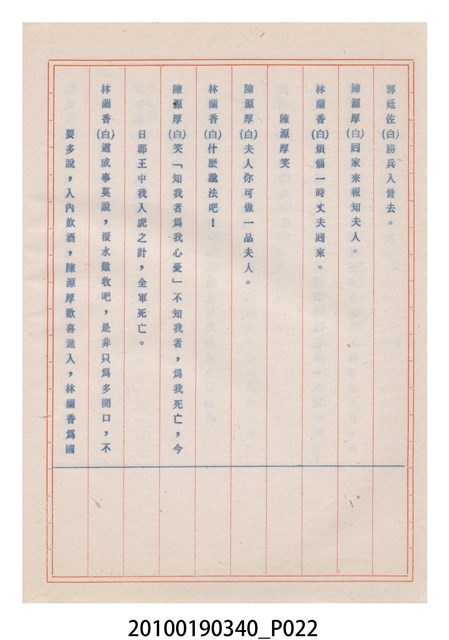 郭廷佐(白)將兵入營去。
陳源厚(白)囘家來報知夫人。
林蘭香(白)煩惱一時丈夫囘來。
陳源厚笑
陳源厚(白)夫人你可做一品夫人。
林蘭香(白)什麽說法吧!
陳源厚(白)笑「知我者爲我心憂」不知我者,爲我死亡,今
日鄰王中我入虎之計,全軍死亡。
林蘭香(白)道成事莫說,覆水難收吧,是非只爲多開口,不
要多說,入內飲酒,陳源厚歡喜進入,林蘭香爲國
20100190340_P022